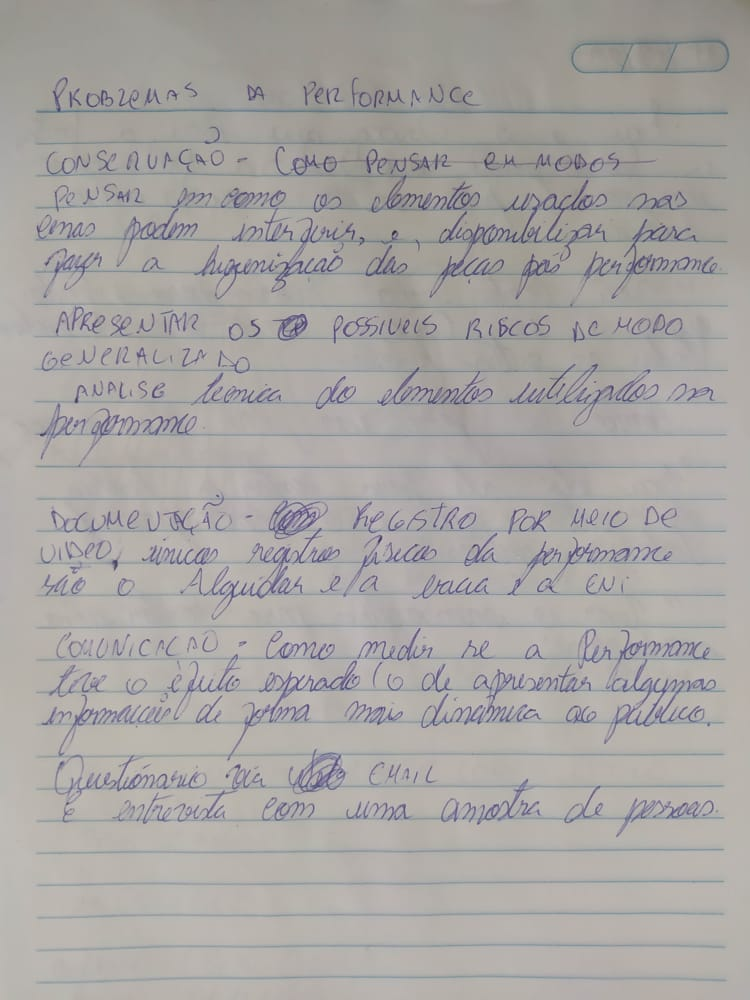 PROBLEMAS DA PERFORMANCE
CONSERVAÇÃO - COMO PENSAR EM MODOS
PENSAR em como os elementos usados nas
cenas podem interferir, e, disponibilizar para
fazer a higienização das peças pós performance.
APRESENTAR OS POSSIVEIS RISCOS DE MODO
GENERALIZADO
ANALISE técnica do elementos utilizados na
performance.
DOCUMENTAÇÃO - REGISTRO POR MEIO DE
VIDEO, únicos registros físicos da performance
são o Alguidar e a e a
COMUNICAÇÃO - Como medir se a Performance
teve o efeito esperado (o de apresentar algumas
informações de forma mais dinâmica ao público.
Questionário via EMAIL
E entrevista com uma amostra de pessoas.